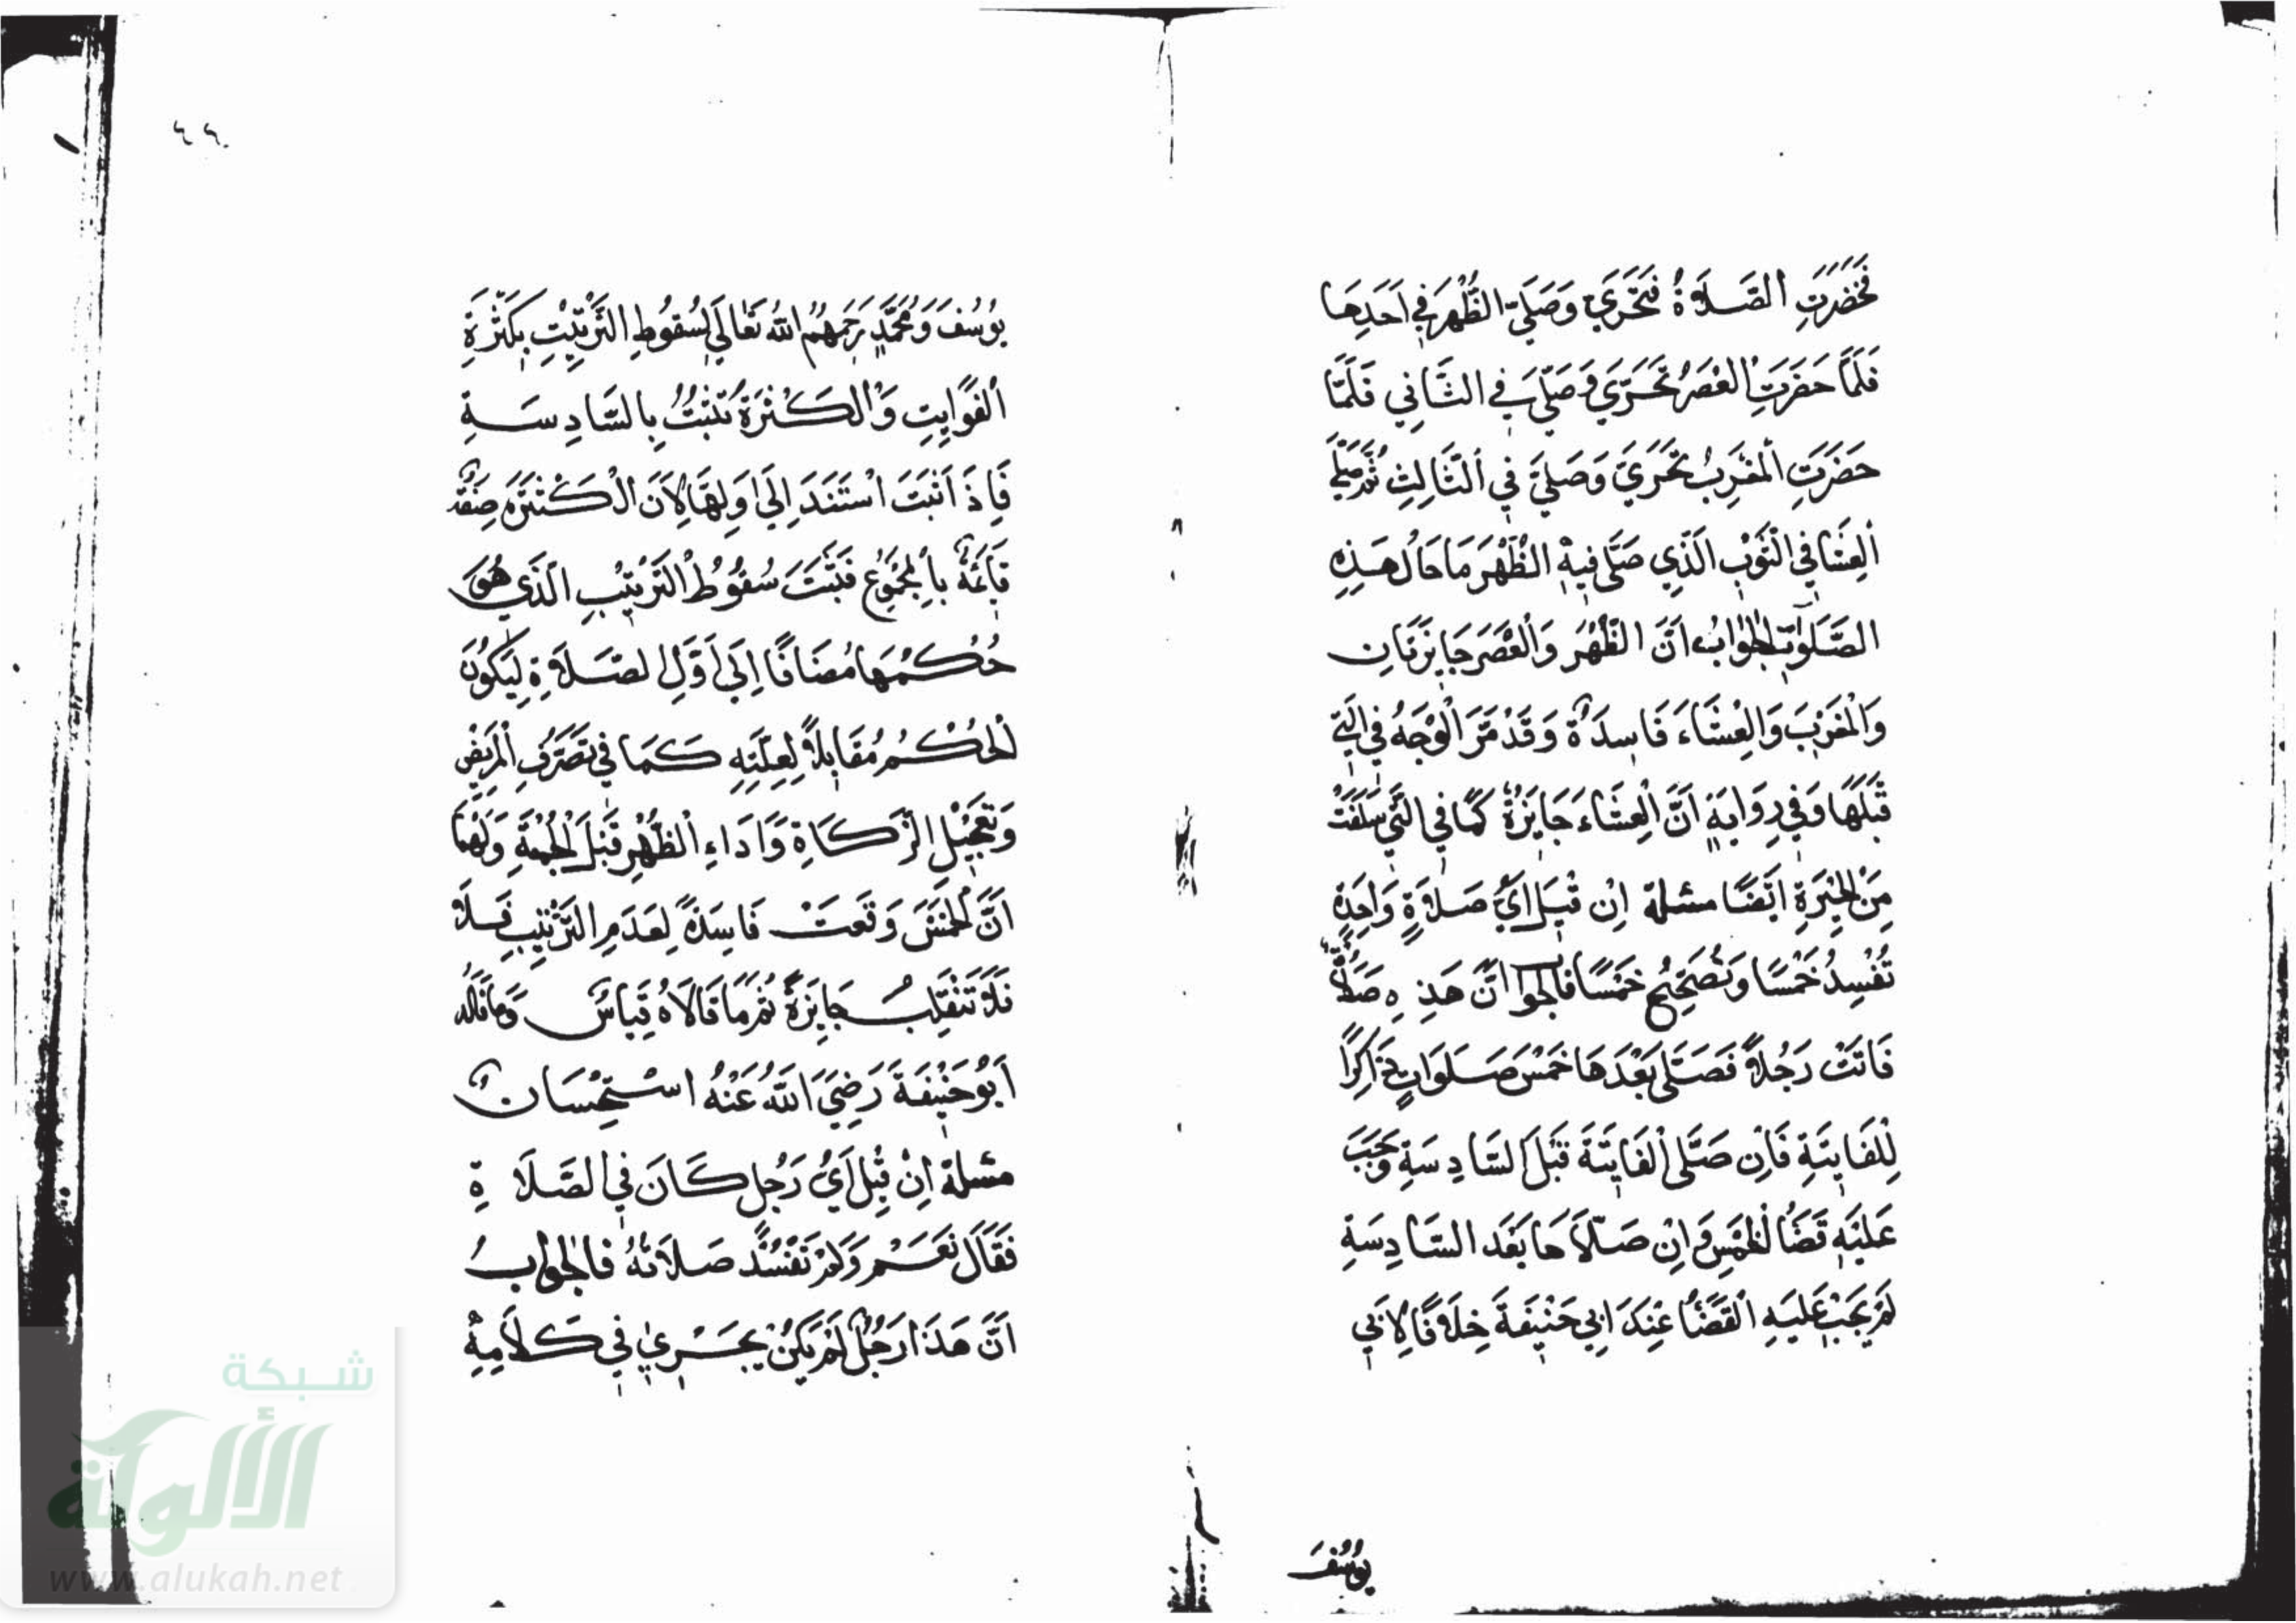 فَحَضَرَتِ الصَّلَاةُ فَتَحَرَّي وَصَلَّي الظُّهْرَ فِي اَحَدِهَا
فَلَمَّا حَضَرَتِ الْعَصْرُ تَحَرَّي وَصَلَّي فِي الثَّانِي فَلَمَّا
حَضَرَتِ الْمَغْرِبُ تَحَرَّي وَصَلَّي فِي الثَّالِثِ ثُمَّ صَلَّي
الْعِشَا فِي الثَّوْبِ الَّذِي صَلَّى فِيهِ الظُّهْرَ مَا حَالُ هَذِهِ
الصَّلَوَاتِ الْجَوَابُ اَنَّ الظُّهْرَ وَالْعَصْرَ جَايِزَتَانِ
وَالْمَغْرِبَ وَالْعِشَاءَ فَاسِدَةٌ وَقَدْ مَرَّ الْوَجْهُ فِي الَّتِي
قَبْلَهَا وَفِي رِوَايَةٍ اَنَّ الْعِشَاءَ جَايِزَةٌ كَمَا فِي الَّتِي سَلَفَتْ
مِنَ الْحِيْرَةِ اَيْضًا مسئلة اِنْ قِيْلَ اَيُّ صَلَاةٍ وَاحِدَةٍ
تُفْسِدُ خَمْسًا وَتُصَحِّحُ خَمْسًا فالجواب اَنَّ هَذِهِ صَلَاةٌ
فَاتَتْ رَجُلًا فَصَلَّى بَعْدَهَا خَمْسَ صَلَوَاتٍ ذَاكِرًا
لِلْفَايِتَةِ فَاِنْ صَلَّى الْفَايِتَةَ قَبْلَ السَّادِسَةِ وَجَبَ
عَلَيْهِ قَضَا الْخَمْسِ وَاِنْ صَلَّاهَا بَعْدَ السَّادِسَةِ
لَمْ يَجِبْ عَلَيْهِ الْقَضَا عِنْدَ اَبِي حَنِيْفَةَ خِلَافًا لِاَبِي
يُوسُفَ
٤٢
يُوسُفَ وَمُحَمَّدٍ رَحِمَهُمُ اللهُ تَعَالَي لِسُقُوطِ التَّرْتِيْبِ بِكَثْرَةِ
الْفَوَايِتِ وَالْكَثْرَةُ تَثْبُتُ بِالسَّادِسَةِ
فَاِذَا ثَبَتَ اسْتَنَدَ اِلَي اَوَّلِهَا لِاَنَّ الْكَثْرَةَ صِفَةٌ
قَايِمَةٌ بِالْمَجْمُوعِ فَثَبَتَ سُقُوطُ التَّرْتِيْبِ الَّذِي هُوَ
حُكْمُهَا مُضَافًا اِلَي اَوَّلِ الصَّلَاةِ لِيَكُونَ
الْحُكْمُ مُقَابِلًا لِعِلَّتِهِ كَمَا فِي تَصَرُّفِ الْمَرِيضِ
وَتَعْجِيْلِ الزَّكَاةِ وَاَدَاءِ الظُّهْرِ قَبْلَ الْجُمْعَةِ وَلَهُمَا
اَنَّ الْخَمْسَ وَقَعَتْ فَاسِدَةً لِعَدَمِ التَّرْتِيبِ فَلَا
فَلَا تَنْقَلِبُ جَايِزَةً ثُمَّ مَا قَالَاهُ قِيَاسٌ وَمَا قَالَهُ
اَبُو حَنِيْفَةَ رَضِيَ اللَّهُ عَنْهُ اسْتِحْسَانٌ
مسئلة اِنْ قِيْلَ اَيُّ رَجُلٍ كَانَ فِي الصَّلَاةِ
فَقَالَ نَعَمْ وَلَمْ تَفْسُدْ صَلَاتُهُ فالجواب
اَنَّ هَذَا رَجُلٌ لَمْ يَكُنْ يَجْرِي فِي كَلَامِهِ
شبكة
الألوكة
www.alukah.net